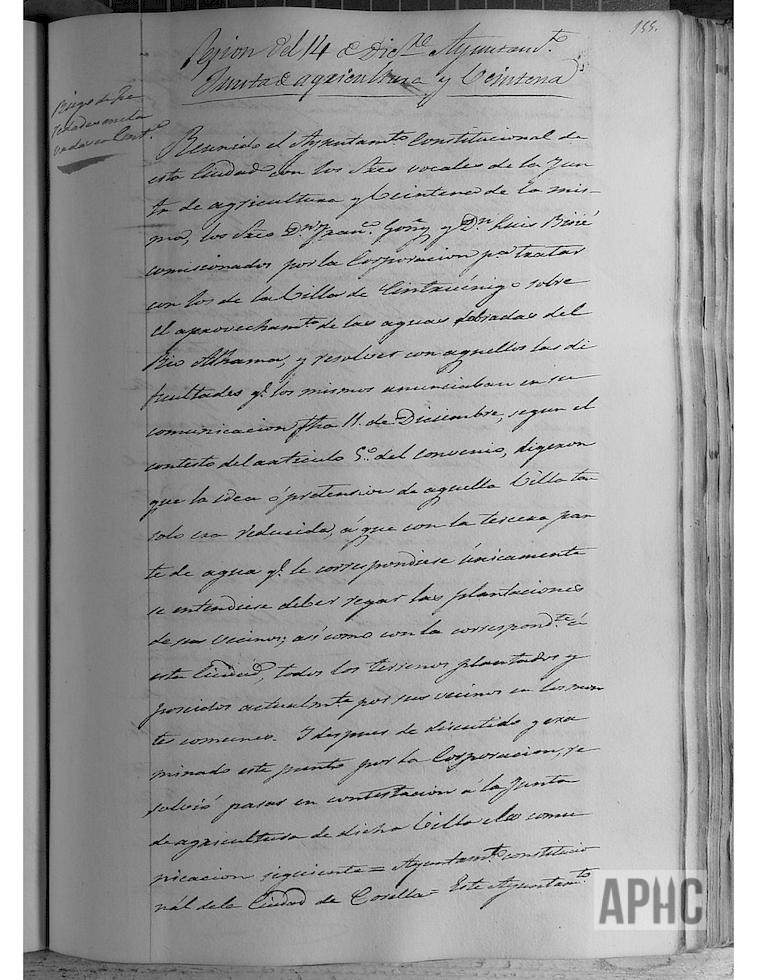 155.
Sesion del 14 de Dic.re Ayuntam.to
Junta de agricultura y Veintena
Riego de He
redades en
Reunido el Ayuntam.to Constitucional de
esta Ciudad con los Sres vocales de la Jun
ta de agricultura y Veintena de la mis-
ma, los Sres D.n Fran.co Goñi y D.n Luis
comisionados por la Corporacion p.a tratar
con los de la Villa de Cintruénigo sobre
el aprovecham.to de las aguas sobradas del
Rio Alhama, y resolver con aquellos las di
ficultades q.e los mismos anunciaban en su
comunicacion fha 11. de Diciembre, segun el
contesto del articulo 5.o del convenio, digeron
que la idea ó pretension de aquella Villa tan
solo era reducida, á que con la tercera par
te de agua q.e le correspondiese únicamente
se entendiese deber regar las plantaciones
de sus vecinos; asi como con la correspond.te á
esta Ciudad, todos los terrenos plantados y
poseidos actualm.te por sus vecinos en los mon
tes comunes. I despues de discutido y exa
minado este punto por la Corporacion, re
solvió pasar en contestacion á la Junta
de agricultura de dicha Villa la comu
nicacion siguiente = Ayuntam.to constitucio
nál de la Ciudad de Corella = Este Ayuntam.to
APHC